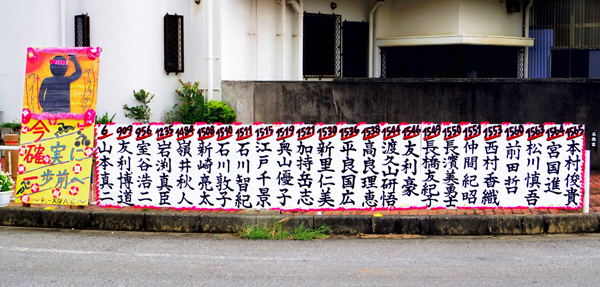 今
確実に
一歩前へ
6 山本真二
909 友利博道
956 室谷浩二
1235 岩渕真臣
1494 嶺井秋人
1508 新崎亮太
1510 石川敦子
1511 石川智紀
1515 江戸千景
1519 奥山優子
1521 加持岳志
1530 新里仁美
1535 平良国広
1538 高良理恵
1544 渡久山研悟
1546 友利豪
1549 長橋友紀子
1550 長濱美車士
1551 仲間紀昭
1553 西村香織
1560 前田哲
1563 松川慎吾
1564 宮国進
1565 本村俊貴